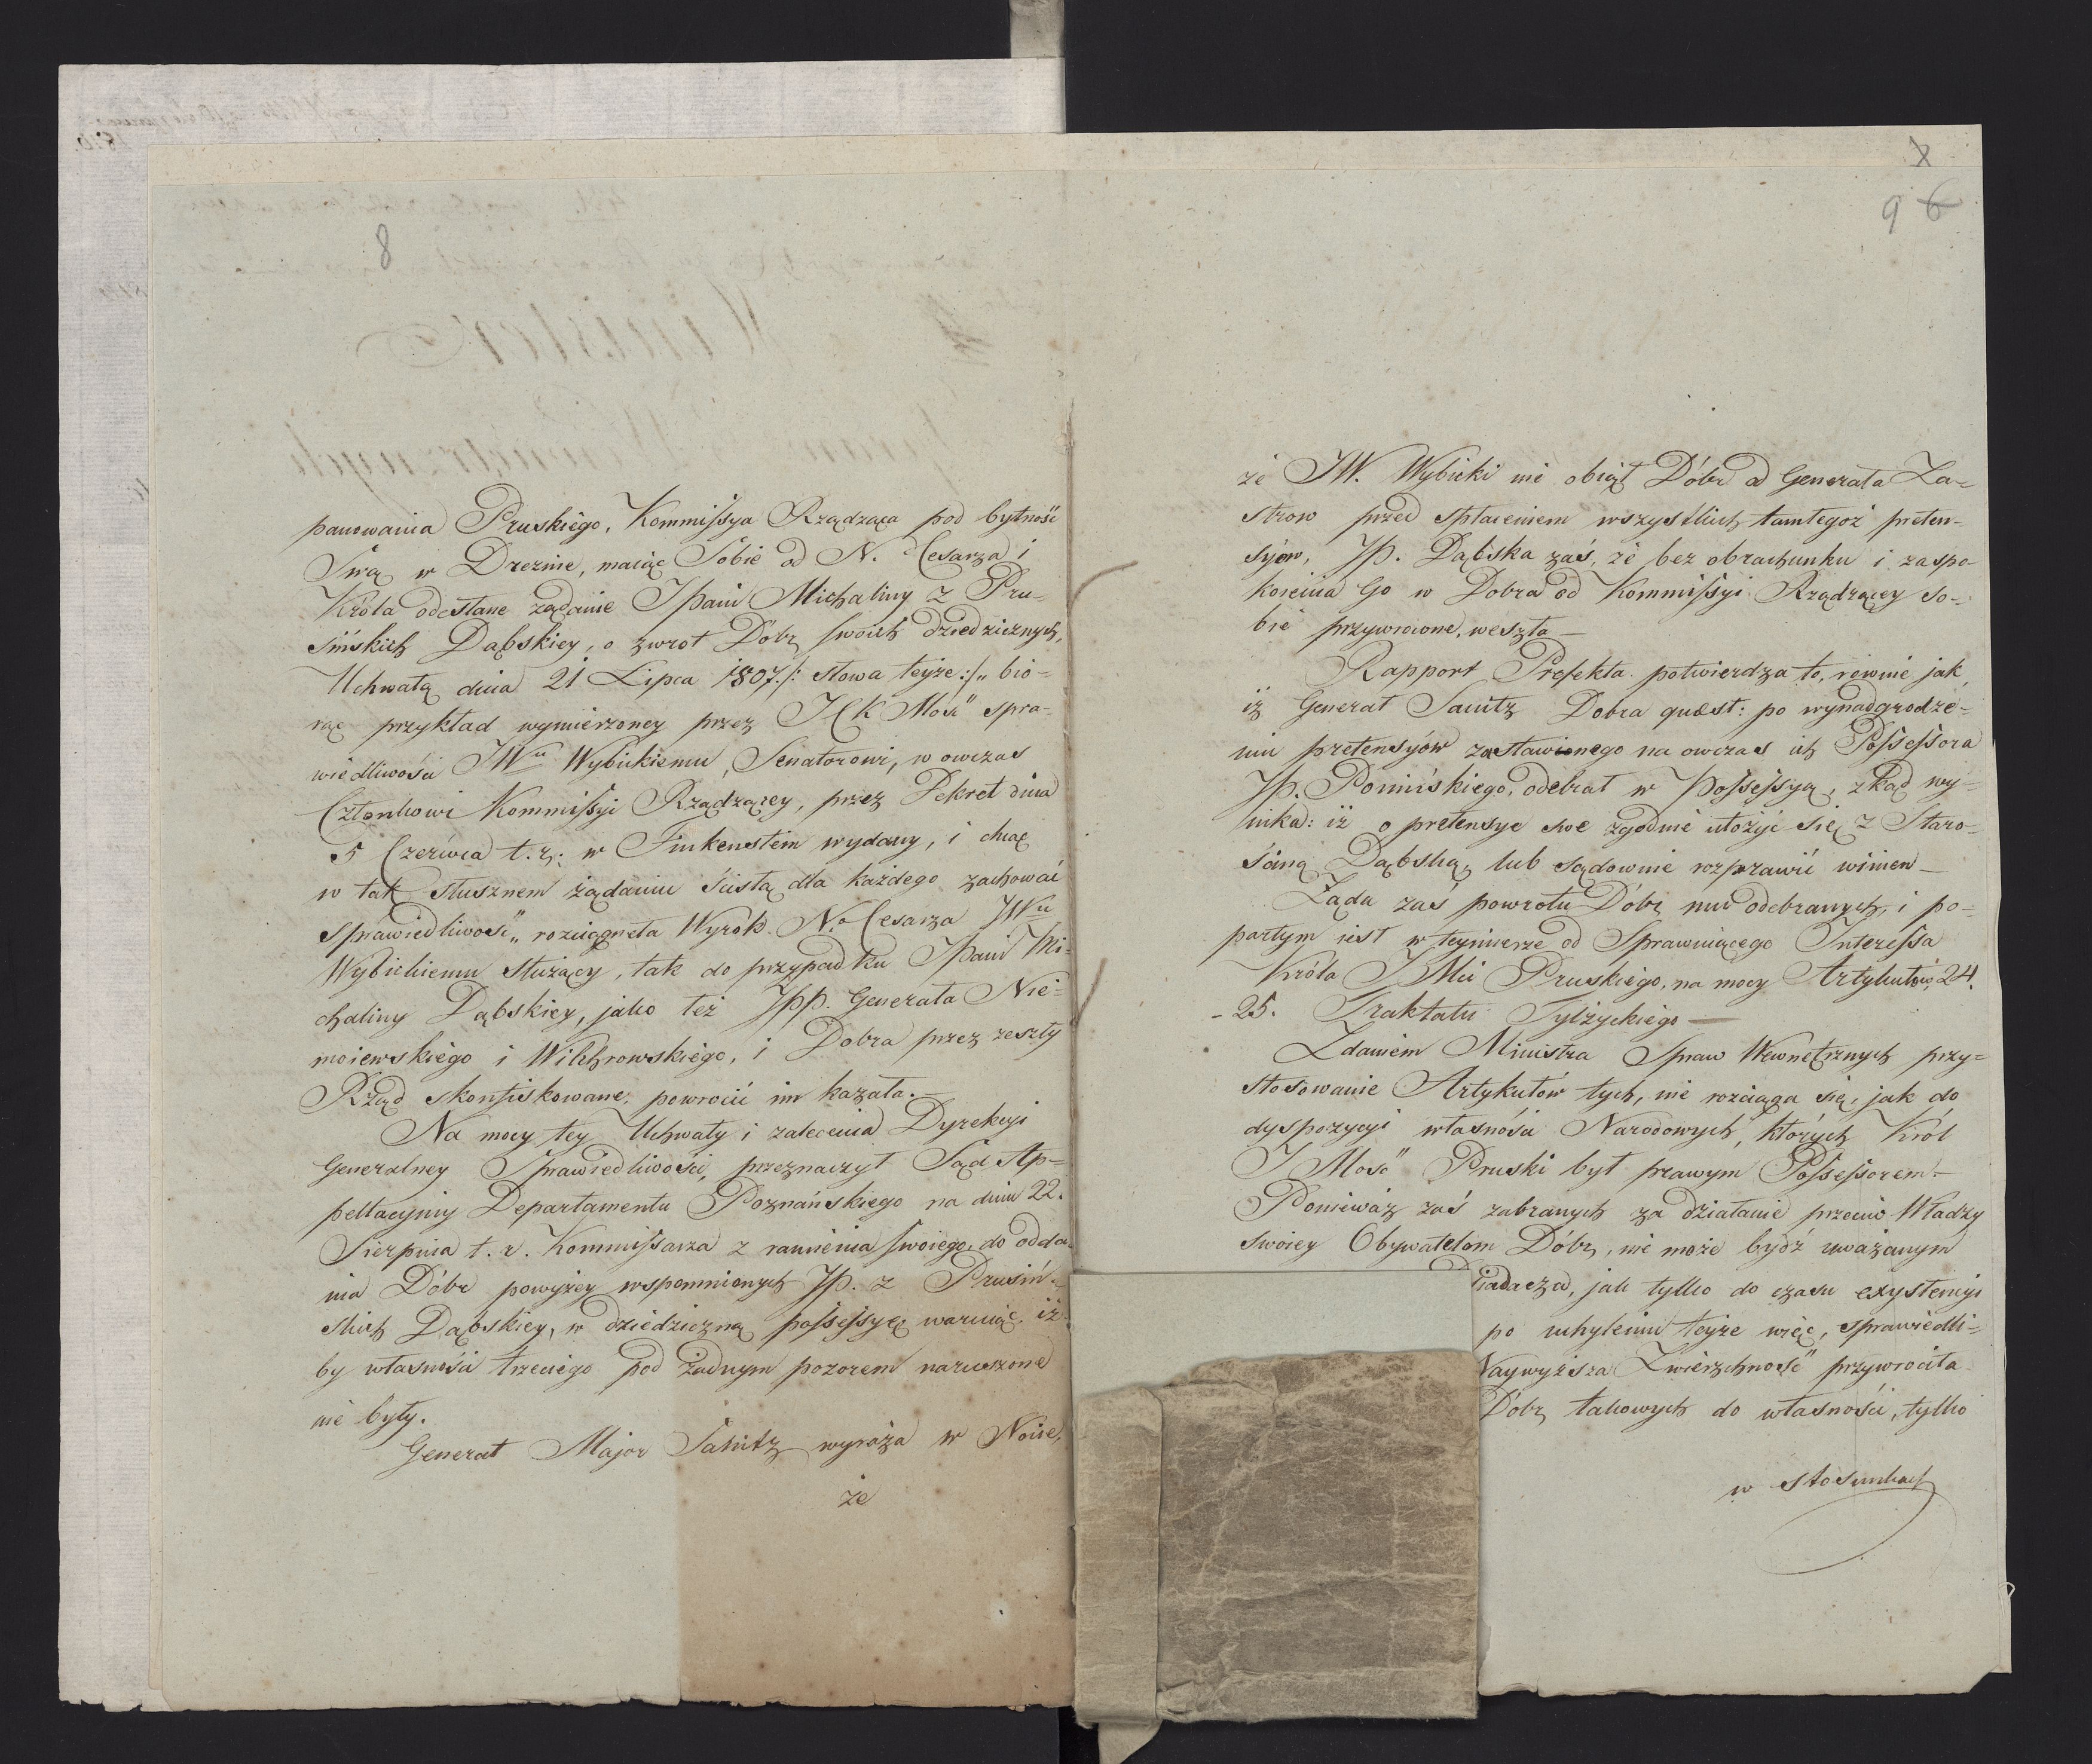 8
panowania Pruskiego, Kommissya Rządząca pod bytność
Swą w Dreznie, maiąc Sobie od N. Cesarza i
Króla odesłane żądanie JPani Michaliny z Pru-
sińskich Dąbskiey, o zwrot Dóbr swoich dziedzicznych,
Uchwałą dnia 21 Lipca 1807./: słowa teyże :/ „ bio-
rąc przykład wymierzoney przez JCK Mość spra-
wiedliwości JWu Wybickiemu, Senatorowi, w owczas
Członkowi Kommissyi Rządzącey, przez Dekret dnia
5 Czerwca t. r. w Finkenstein wydany, i chcąc
w tak słusznem żądaniu ścisłą dla każdego zachować
sprawiedliwość „ rozciągnęła Wyrok No Cesarza JWu
Wybickiemu służący, tak do przypadku JPani Mi-
chaliny Dąbskiey, jako też JPP. Generała Nie-
moiewskiego i Wilchrowskiego, i Dobra przez zeszły
Rząd skonfiskowane, powrócić im kazała.
Na mocy tey Uchwały i zalecenia Dyrekcyi
Generalney Sprawiedliwości, przeznaczył Sąd Ap-
pellacyiny Departamentu Poznańskiego na dniu 22.
Sierpnia t. r. Kommissarza z ramienia swoiego, do odda-
nia Dóbr powyżey wspomnionych JP. z Prusiń-
skich Dąbskiey, w dziedziczną possessyą waruiąc, iż
by własności trzeciego pod żadnym pozorem naruszone
nie były.
Generał Major Sanitz wyraża w Nocie,
że
x
9 6
że JW. Wybicki nie obiął Dóbr od Generała Za-
strow przed spłaceniem wszystkich tamtegoż preten-
syów, JP. Dąbska zaś, że bez obrachunku i zaspo-
koienia Go w Dobra od Kommissyi Rządzącey so-
bie przywrócone, weszła —
Rapport Prefekta potwierdza to, równie jak
iż Generał Sanitz Dobra quæst: po wynadgrodze-
niu pretensyów zastawionego na owczas ich Possessora
JP. Ponińskiego, odebrał w Possessyą, zkąd wy-
nika: iż o pretensye swe zgodnie ułożyć się z Staro-
ściną Dąbską, lub sądownie rozprawić winien —
Żąda zaś powrotu Dóbr mu odebranych, i po-
partym iest w teymierze od Sprawuiącego Interessa
Króla JMci Pruskiego, na mocy Artykułów 24.
- 25. Traktatu Tylżyckiego —
Zdaniem Ministra Spraw Wewnętrznych przy-
stosowanie Artykułów tych, nie rozciąga się, jak do
dyspozycyi własności Narodowych, których Król
J Mość Pruski był prawym Possessorem. —
Ponieważ zaś zabranych za działanie przeciw Władzy
swoiey Obywatelom Dóbr, nie może bydź uważanym
iadacza, jak tylko do czasu exystencyi
po uchyleniu teyże więc, sprawiedli-
Naywyższa Zwierzchność przywróciła
Dóbr takowych do własności, tylko
w stosunkach